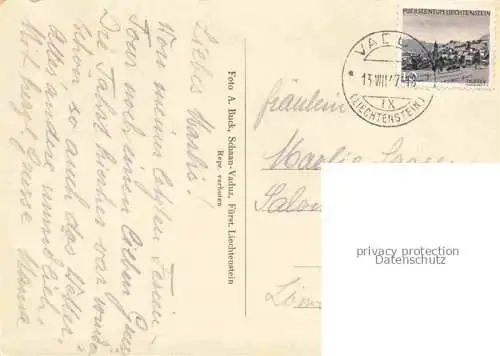 Liebes Marlis!
Von meiner letzten Ferien-
Tour noch einen lieben Gruss.
Die Fahrt hieher war wunder
schön so auch das Wetter.
Alles andere mündlich.
Mit herzl. Grüsse Mama
Foto A. Buck, Schaan-Vaduz, Fürst. Liechtenstein
Repr. verboten
FÜRSTENTUM LIECHTENSTEIN
VADUZ
13.VII.47-18
IX
(LIECHTENSTEIN)
Fräulein
Marlis
privacy protection
Datenschutz